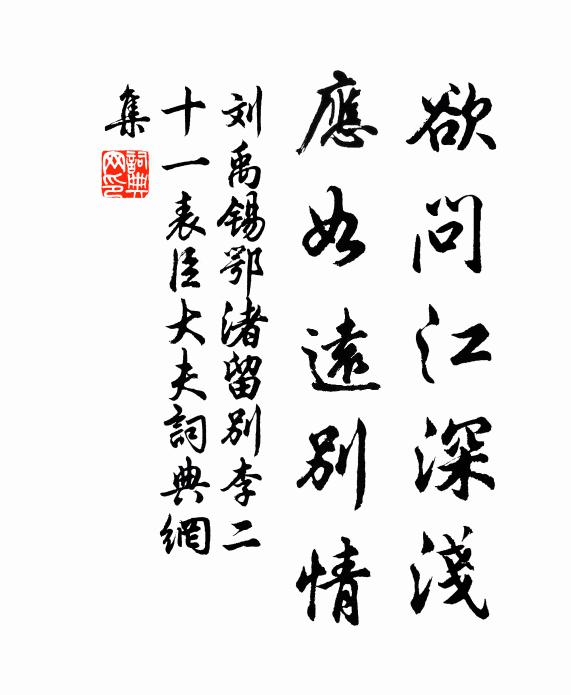 欲問江深淺
應如遠別情
刘禹锡鄂渚留别李二
十一表臣大夫詞典網
集
詞典网印